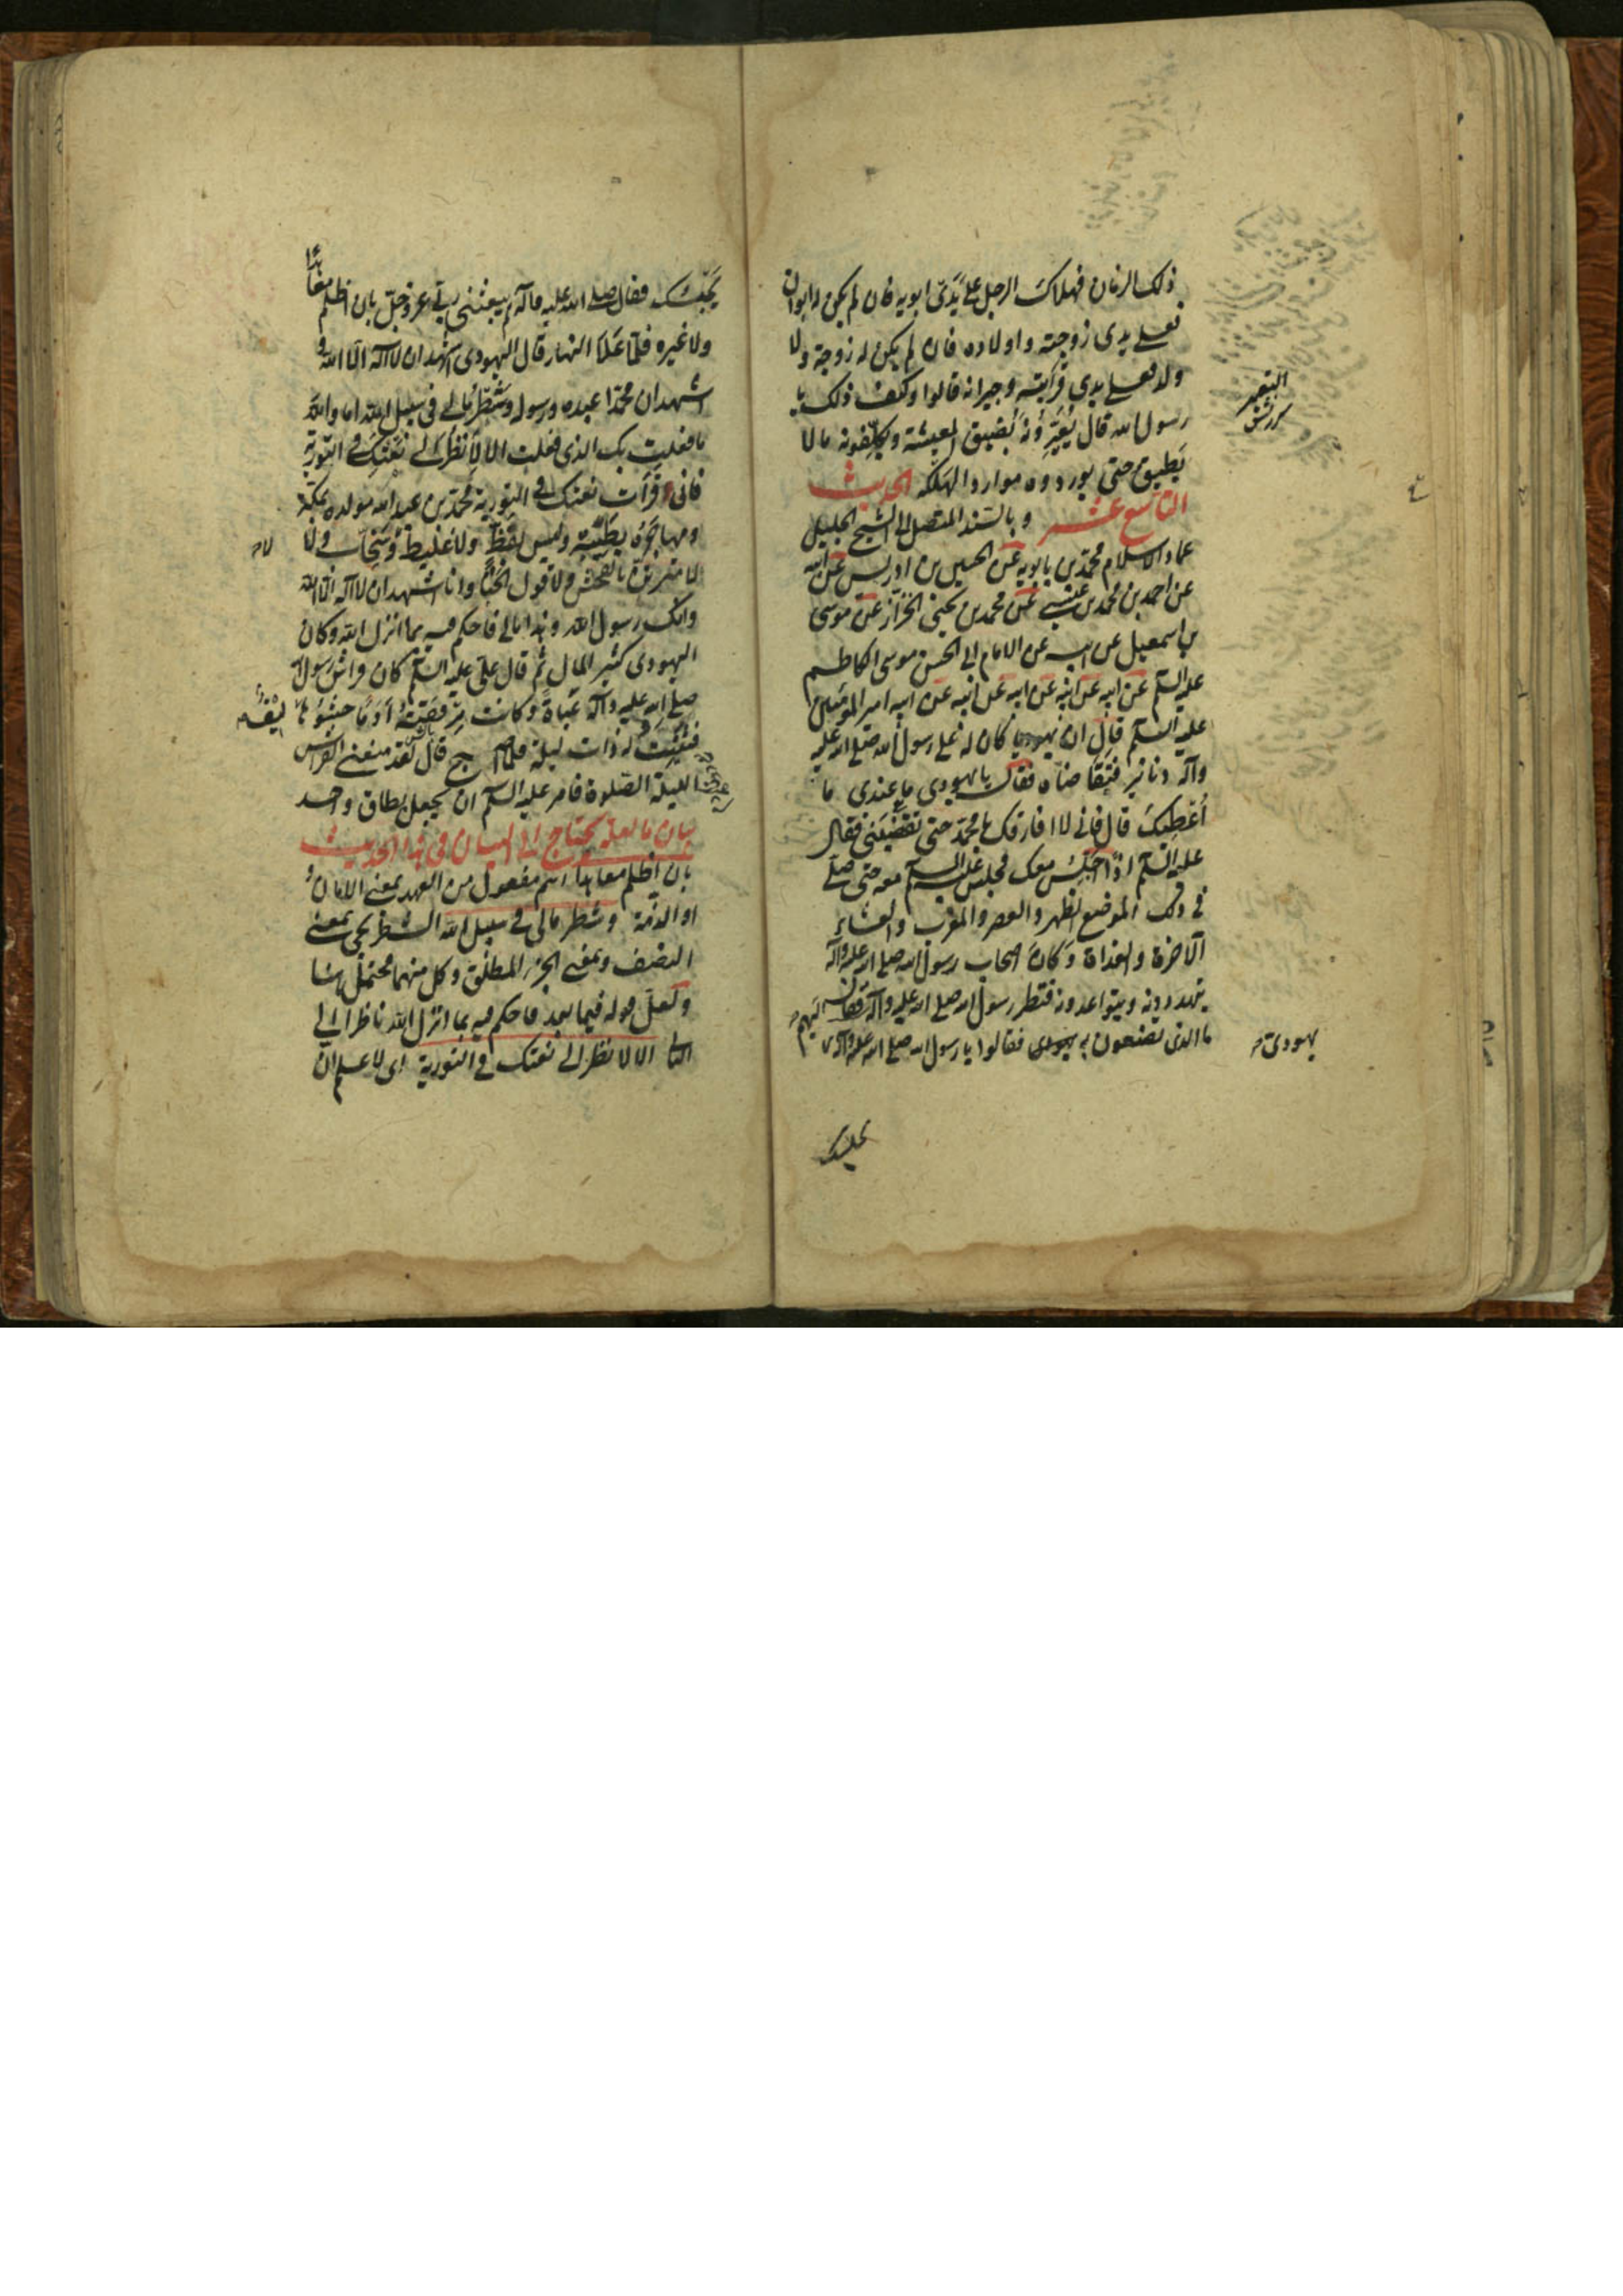 ذلك الزمان فهلاك الرجل على يدى ابويه فان لم يكن له ابوان
فعلى يدى زوجته واولاده فان لم يكن له زوجة ولا
ولد فعلى يدى قرابته وجيرانه قالوا وكيف ذلك يا
رسول الله قال يعيرونه بضيق المعيشة ويكلفونه ما لا
يطيق حتى يوردوه موارد الهلكه الحديث
التاسع عشر وبالسند المتصل الى الشيخ الجليل
عماد الاسلام محمد بن بابويه عن الحسين بن ادريس عن ابيه
عن احمد بن محمد بن عيسى عن محمد بن يحيى الخزاز عن موسى
بن اسمعيل عن ابيه عن الامام ابى الحسن موسى الكاظم
عليه السلم عن ابيه عن ابيه عن ابيه عن ابيه عن ابيه امير المؤمنين
عليه السلم قال ان يهوديا كان له على رسول الله صلى الله عليه
وآله دنانير فتقاضاه فقال يا يهودى ما عندى ما
اعطيك قال فانى لا افارقك يا محمد حتى تقضينى فقال
عليه السلم اذا اجلس معك فجلس عليه السلم معه حتى صلى
فى ذلك الموضع الظهر والعصر والمغرب والعشاء
الآخرة والغداة وكان اصحاب رسول الله صلى الله عليه وآله
يتهددونه ويتواعدونه فنظر رسول الله صلى الله عليه وآله فقال اليهم
ما الذى تصنعون به يهودى فقالوا يا رسول الله صلى الله عليه وآله
يهودى
يحبسك
يحبسك فقال صلى الله عليه وآله لم يبعثنى ربى عز وجل بان اظلم معاهدا
ولا غيره فلما علا النهار قال اليهودى اشهد ان لا اله الا الله و
اشهد ان محمدا عبده ورسوله وشطر مالى فى سبيل الله اما والله
ما فعلت بك الذى فعلت الا لانظر الى نعتك فى التورية
فانى قرأت نعتك فى التورية محمد بن عبد الله مولده بمكة
ومهاجره بطيبة وليس بفظ ولا غليظ وسخاب ولا
لا متزين بالفحش ولا قول الخنا وانا اشهد ان لا اله الا الله
وانك رسول الله وهذا مالى فاحكم فيه بما انزل الله وكان
اليهودى كثير المال ثم قال على عليه السلم كان فراش رسول الله
صلى الله عليه وآله عباة وكانت مرفقته أدما حشوها ليف
فثنيت له ذات ليلة فلما اصبح قال لقد منعنى الفراش
الليلة الصلوة فامر عليه السلم ان يجعل بطاق واحد
بيان ما لعله يحتاج الى البيان فى هذا الحديث
بان اظلم معاهدا اسم مفعول من العهد بمعنى الامان
او الذمة وشطر مالى فى سبيل الله الشطر يجئ بمعنى
النصف وبمعنى الجزء المطلق وكل منهما محتمل هنا
ولعل قوله فيما بعد فاحكم فيه بما انزل الله ناظر الى
الثانى الا لانظر الى نعتك فى التورية اى لا علم ان